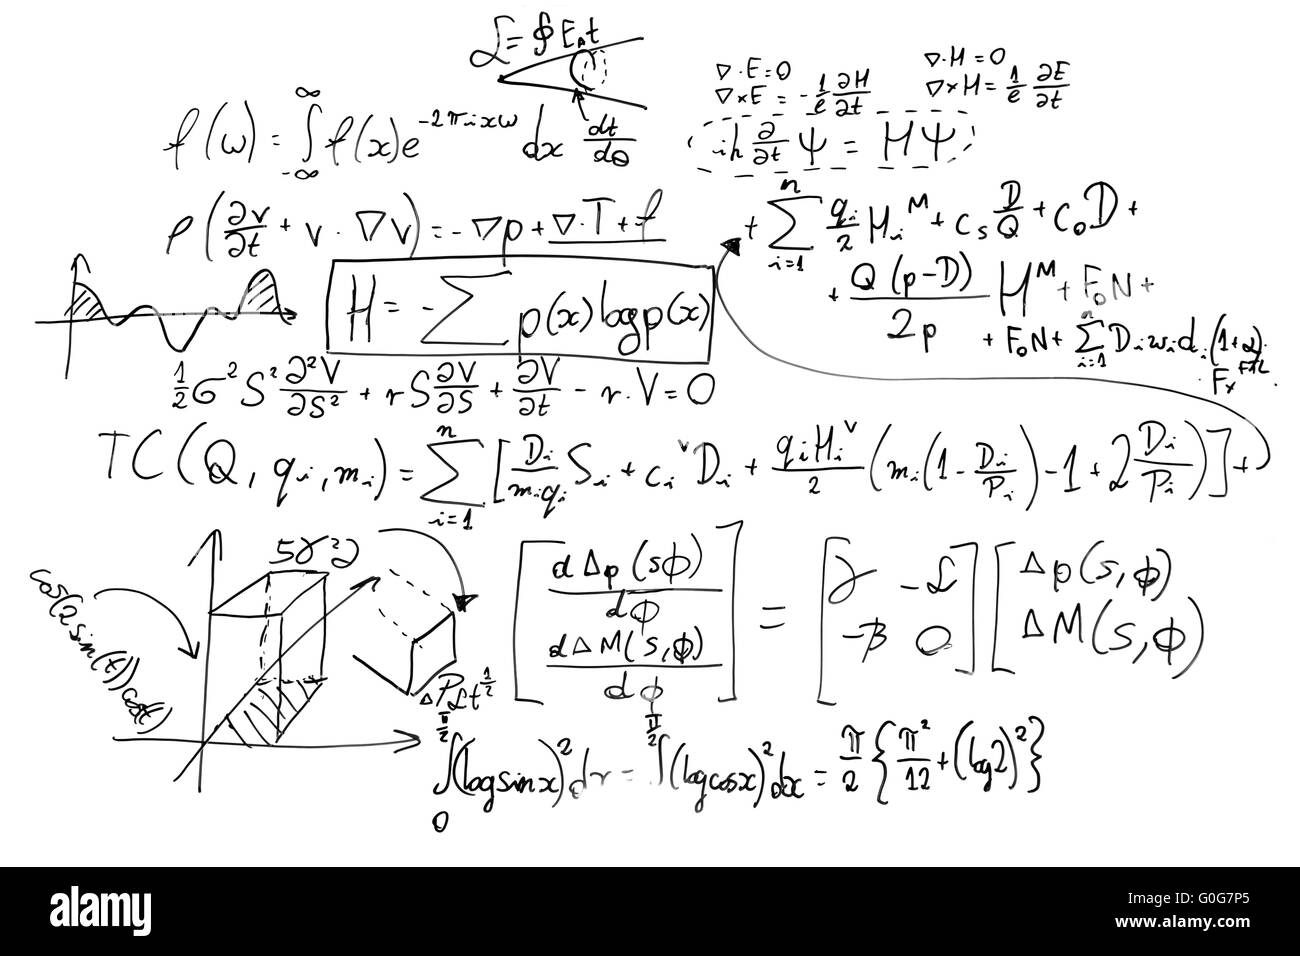 ℒ = ∮ E_A t
∇·E = 0
∇×E = - 1/c ∂H/∂t
∇·H = 0
∇×H = 1/c ∂E/∂t
f(ω) = ∫_{-∞}^{∞} f(x) e^{-2πixω} dx
dt/dθ
iħ ∂/∂t Ψ = HΨ
ρ(∂v/∂t + v·∇v) = -∇p + ∇·T + f
+ Σ_{i=1}^{n} q_i/2 H_i^M + c_s D/Q + c_o D +
+ Q(p-D)/2p H^M + F_o N +
+ F_o N + Σ_{i=1}^{n} D_i w_i d_i (1+α)
F_x
H = -Σ p(x) log p(x)
1/2 σ² S² ∂²V/∂S² + rS ∂V/∂S + ∂V/∂t - r·V = 0
TC(Q, q_i, m_i) = Σ_{i=1}^{n} [D_i/(m_i q_i) S_i + c_i^v D_i + q_i H_i^v/2 (m_i(1 - D_i/P_i) - 1 + 2 D_i/P_i)] +
cos(2sin(t))cos(t)
[d Δp(s,ϕ)/dϕ
d ΔM(s,ϕ)/dϕ] = [γ -ℒ
-β 0] [Δp(s,ϕ)
ΔM(s,ϕ)]
∫_0^{π/2} (log sin x)² dx = ∫^{π/2} (log cos x)² dx = π/2 {π²/12 + (log 2)²}
alamy
alamy
Image ID: G0G7P5
www.alamy.com